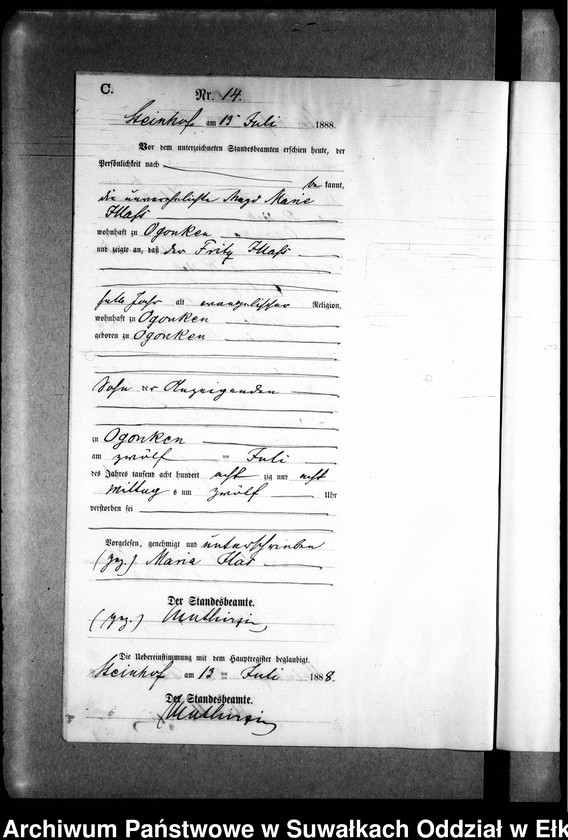 C.
Nr. 14.
Steinhof am 13 Juli 1888.
Vor dem unterzeichneten Standesbeamten erschien heute, der
Persönlichkeit nach
be kannt,
die unverehelichte Magd Marie
wohnhaft zu Ogonken
und zeigte an, daß der Fritz
halb Jahr alt evangelischer Religion,
wohnhaft zu Ogonken
geboren zu Ogonken
Sohn der Anzeigenden
zu Ogonken
am zwölf ten Juli
des Jahres tausend acht hundert acht zig und acht
Mittag s um zwölf Uhr
verstorben sei
Vorgelesen, genehmigt und unterschrieben
(gez.) Maria
Der Standesbeamte.
(gez.)
Die Uebereinstimmung mit dem Hauptregister beglaubigt.
Steinhof am 13 ten Juli 1888.
Der Standesbeamte.
Archiwum Państwowe w Suwałkach Oddział w Ełk